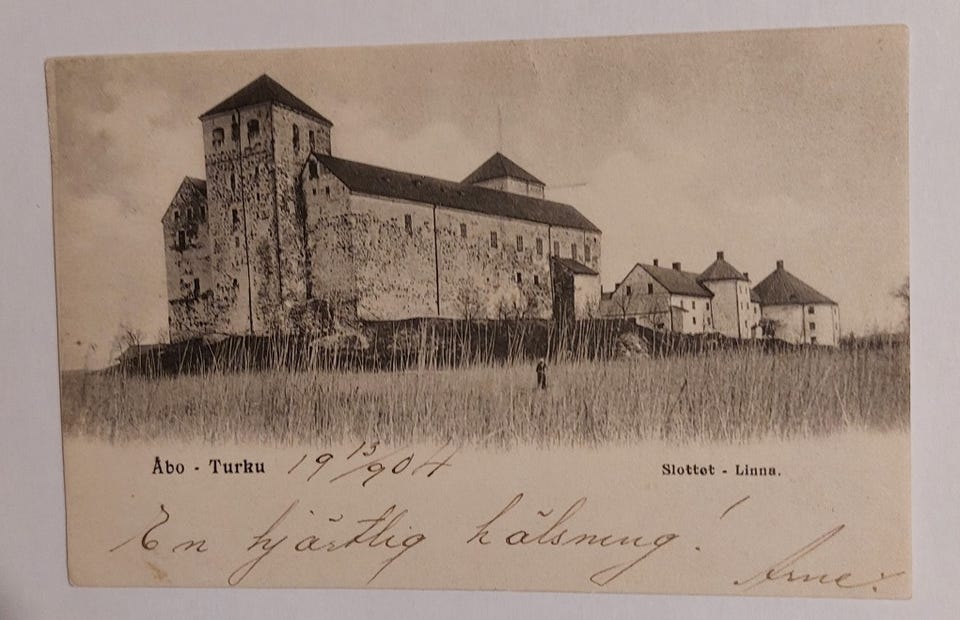 Åbo - Turku 19 13/9 04 Slottet - Linna.
En hjärtlig hälsning!
Arne.